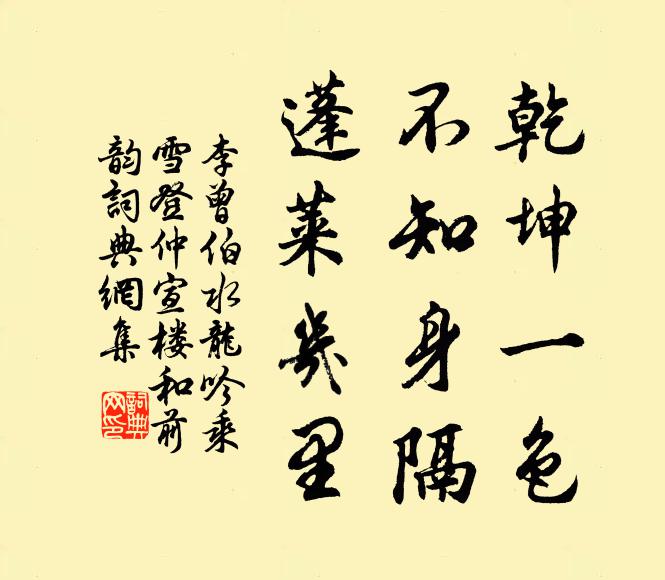 乾坤一色
不知身隔
蓬萊幾里
李曾伯水龍吟乘
雪登仲宣楼和前
韵詞典網集
詞典
网印